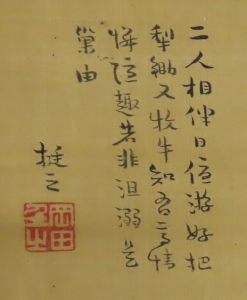 二人相伴日優游好把
犁鋤又牧牛知否高情
憐隱趣若非沮溺是
巢由
挺之